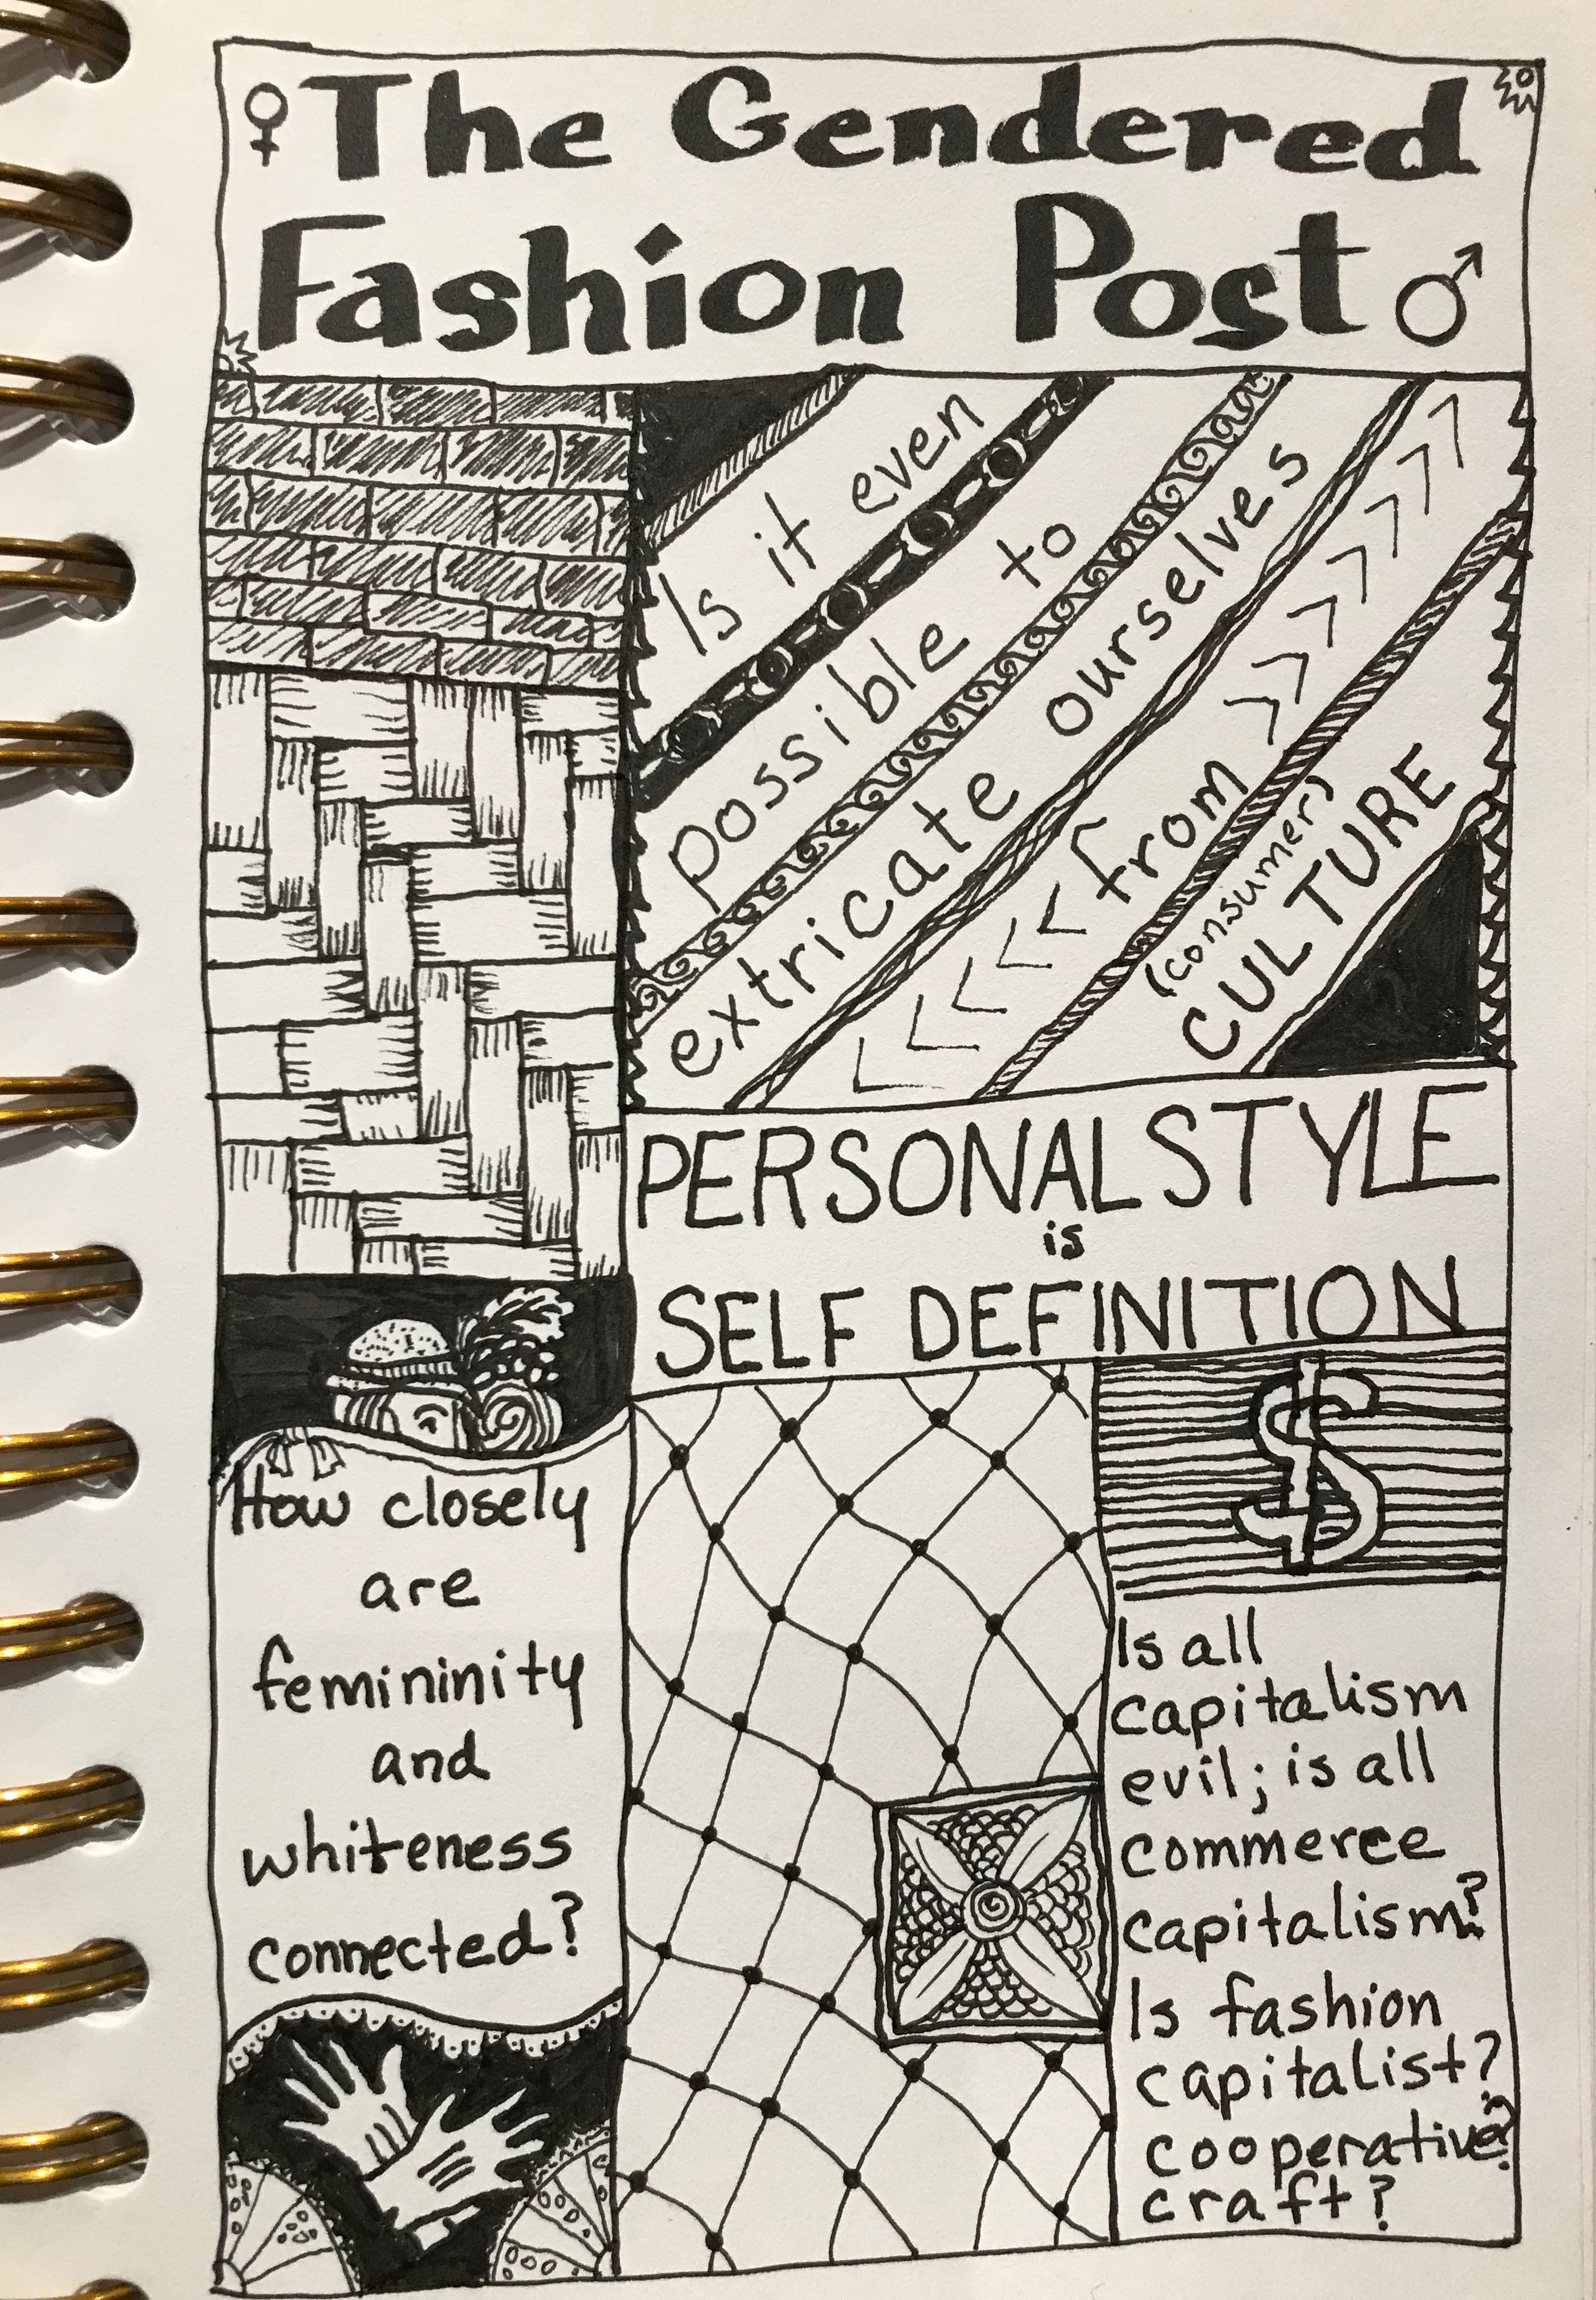 The Gendered
Fashion Post
Is it even
possible to
extricate ourselves
from
(consumer)
CULTURE
PERSONAL STYLE
is
SELF DEFINITION
How closely
are
femininity
and
whiteness
connected?
$
Is all
capitalism
evil; is all
commerce
capitalism?
Is fashion
capitalist?
cooperative?
craft?